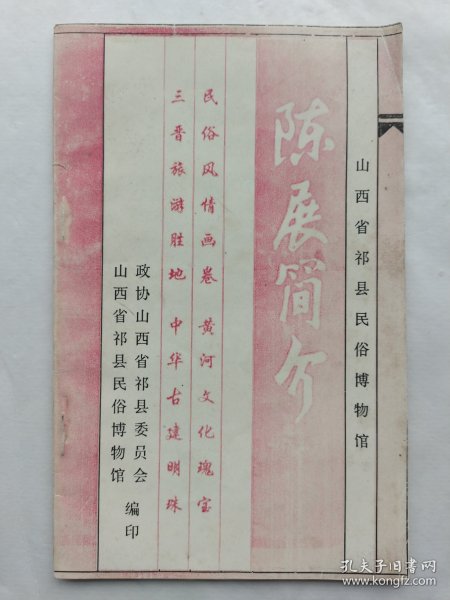 山西省祁县民俗博物馆
陈展简介
民俗风情画卷 黄河文化瑰宝
三晋旅游胜地 中华古建明珠
政协山西省祁县委员会
山西省祁县民俗博物馆
编印
孔夫子旧书网
www.kongfz.com